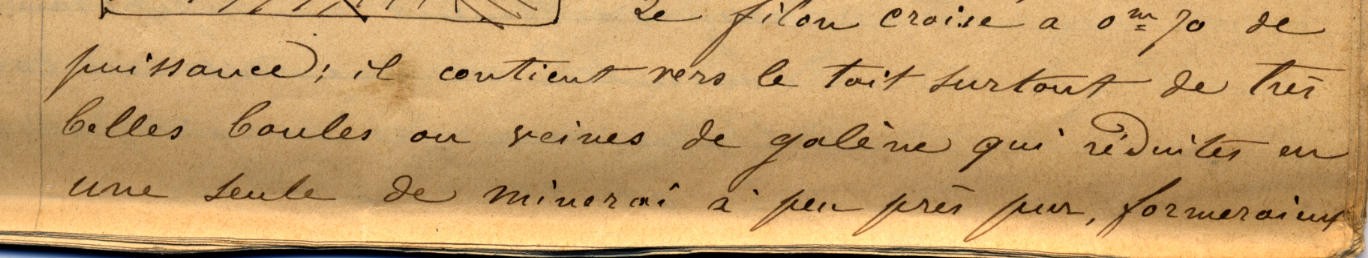 Le filon croise a 0m70 de
puissance; il contient vers le toit surtout de très
belles boules ou veines de galène qui réduites en
une seule de minerai à peu près pur, formeraient